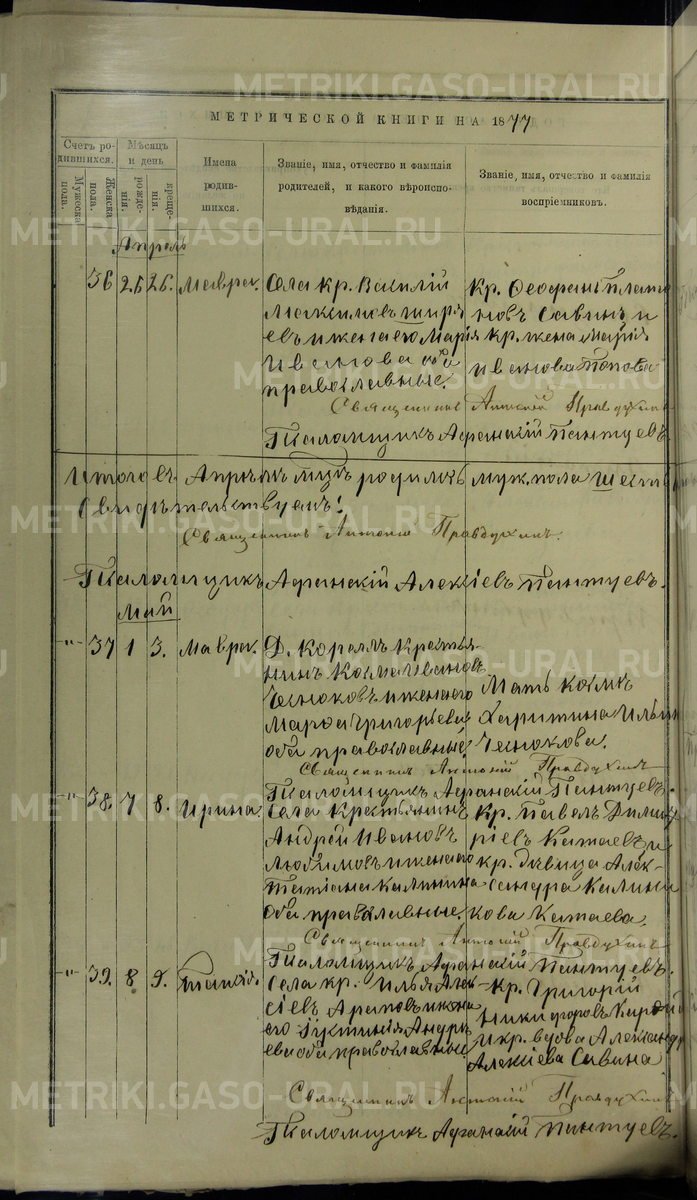 METRIKI.GASO-URAL.RU
МЕТРИЧЕСКОЙ КНИГИ НА 1877
Счетъ родившихся.
Мѣсяцъ и день
Мужеска пола.
Женска пола.
рожденія.
крещенія.
Имена родившихся.
Званіе, имя, отчество и фамилія родителей, и какого вѣроисповѣданія.
Званіе, имя, отчество и фамилія воспріемниковъ.
Апрель
36 26 26. Мавра. Села кр. Василій
Максимовъ Ширя
евъ и жена его Марія
Иванова оба
православные.
Кр. Феофанъ Плато
новъ Савинъ и
кр. жена Марія
Иванова Попова
Священникъ Антоній Правдухинъ
Псаломщикъ Афанасій Пантуевъ.
Итого въ Апрѣлѣ мцѣ родилось муж. пола шесть
Свидѣтельствуемъ:
Священникъ Антоній Правдухинъ.
Псаломщикъ Афанасій Алексіевъ Пантуевъ.
Май
-"- 37 1 3. Мавра. Д. Кораллъ Крестья-
нинъ Косма Ивановъ
Чесноковъ и жена его
Марфа Григорьева
оба православные.
Мать Космы
Харитина Ильин
Чеснокова.
Священникъ Антоній Правдухинъ
Псаломщикъ Афанасій Пантуевъ.
-"- 38. 7 8. Ирина. Села Крестьянинъ
Андрей Ивановъ
Любимовъ и жена его
Татіана Калинина
оба православные.
Кр. Павелъ Димит
ріевъ Катаевъ и
кр. девица Алек-
сандра Калини
кова Катаева.
Священникъ Антоній Правдухинъ
Псаломщикъ Афанасій Пантуевъ.
-"- 39. 8 9. Таисія. Села кр. Илья Алек-
сіевъ Араповъ и жена
его Іустинія Андре
ева оба православные
кр. Григорій
Никифоровъ
и кр. вдова Александр
Алексіева Савина
Священникъ Антоній Правдухинъ
Псаломщикъ Афанасій Пантуевъ.